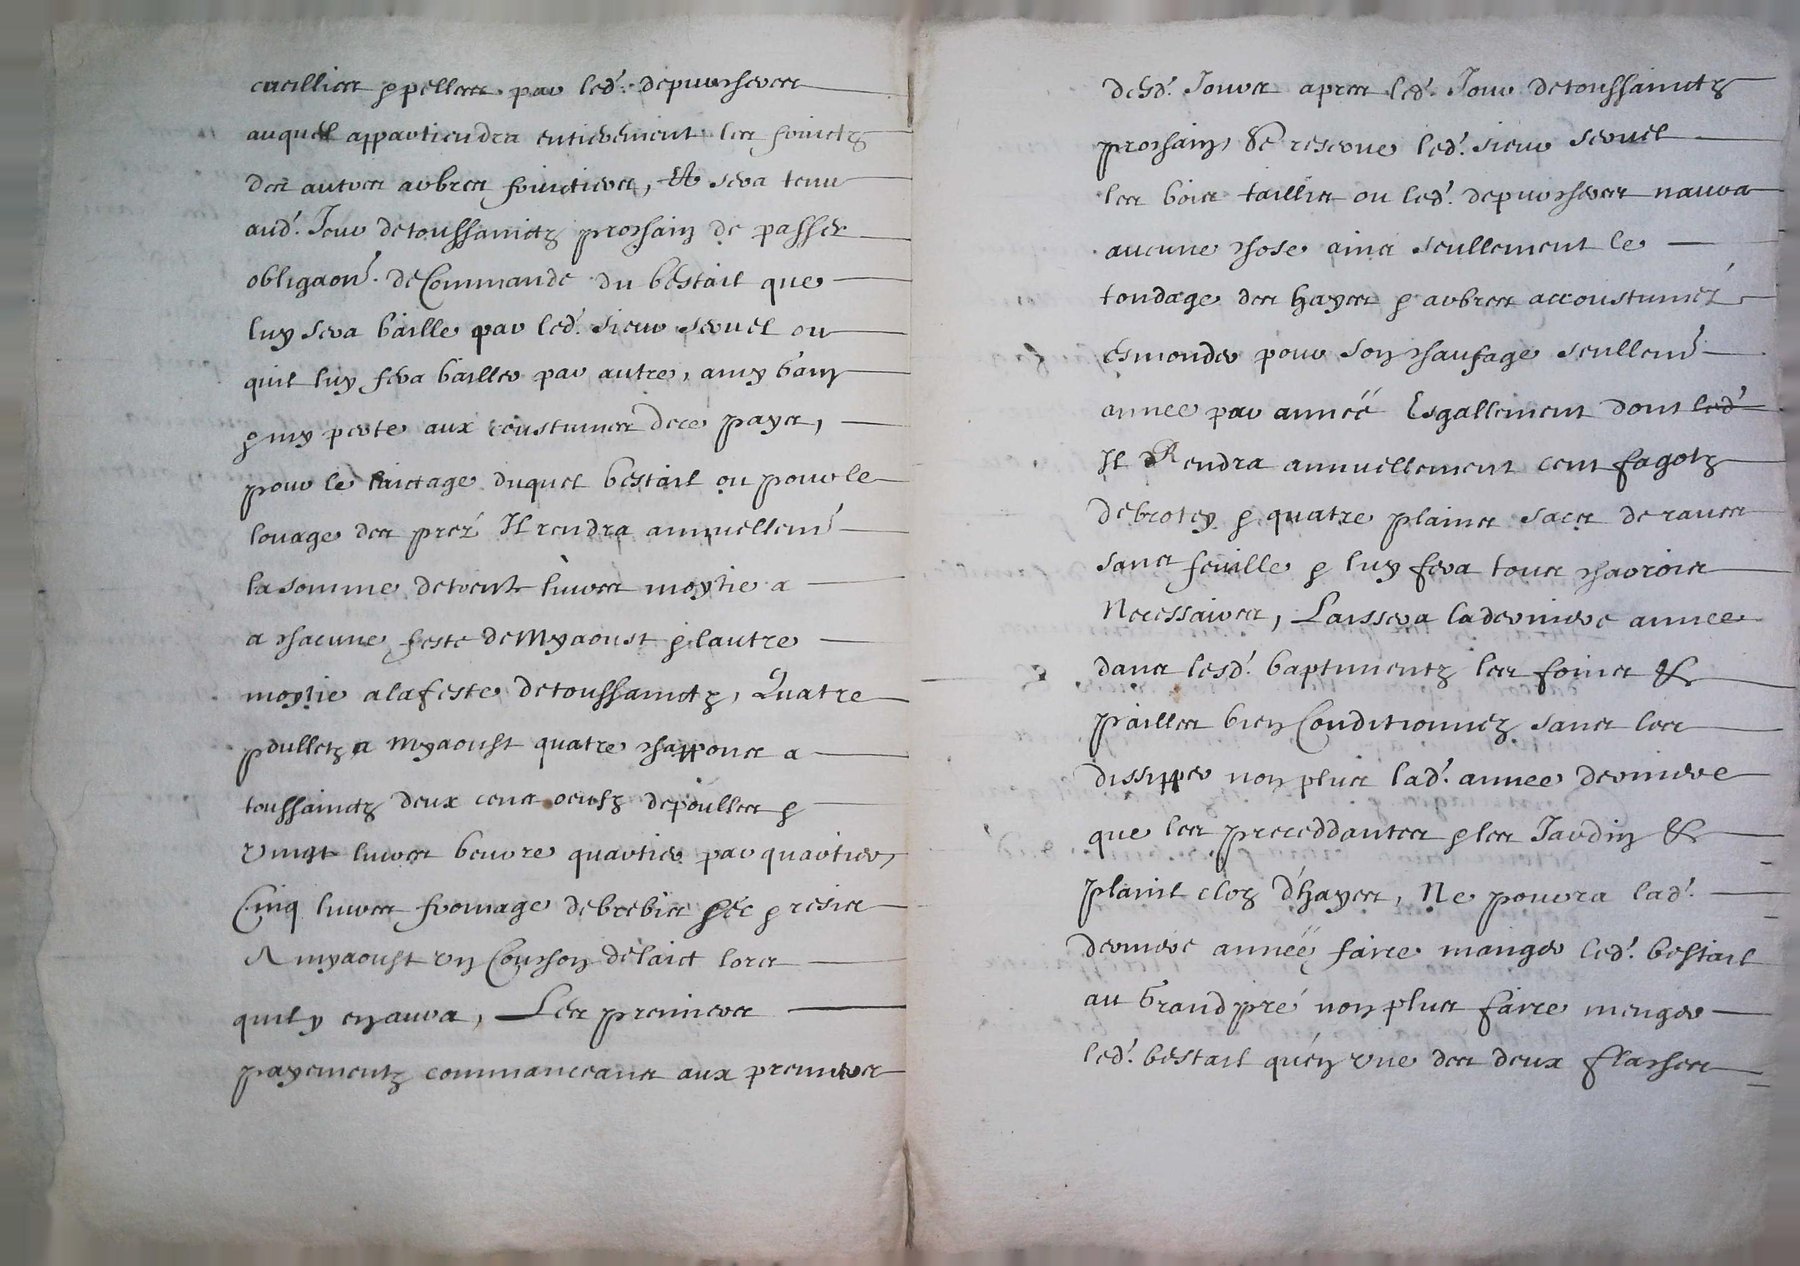 cueillies & pellees par led. depuorseres
auquel appartiendra entierement les fruictz
des autres arbres fruictiers, Et sera tenu
aud. Jour de toussainctz prochain de passer
obligaon. de Commande du bestail que
luy sera baille par led. sieur seruel ou
quil luy fera bailler par autre, a my gain
& my perte aux coustumes de ce pays,
pour le laictage duquel bestail ou pour le
louage des prez Il rendra annuellemt
la somme de trente liures moytie a
a chacune feste de Myaoust & lautre
moytie a la feste de toussainctz, Quatre
pulletz a myaoust quatre chappons a
toussainctz deux cens oeufz de poulles &
vingt liures beurre quartier par quartier,
Cinq liures fromage de brebis sec & resis
A myaoust vn Courson de laict lors
quil y en aura, Les premiers
payementz commanceans aux premiers
desd. Jours apres led. Jour de toussainctz
prochain, Se reserue led. sieur seruel
les bois taillis ou led. depuorseres naura
aucune chose ains seullement le
tondage des hayes & arbres accoustumez
esmonder pour son chaufage seullemt
annee par année Esgallement dont led
Il Rendra annuellement cent fagotz
de brotey & quatre plains sacs de raues
sans feuille & luy fera tous charrois
Necessaires, Laissera la derniere annee
dans lesd. baptimentz les foins &
pailles bien Conditionnez sans les
dissipper non plus lad. annee derniere
que les preceddantes & les Jardin &
plant cloz d'hayes, Ne pourra lad.
derniere année faire manger led. bestail
au Grand pré non plus faire menger
led. bestail qu'en vne des deux flasches